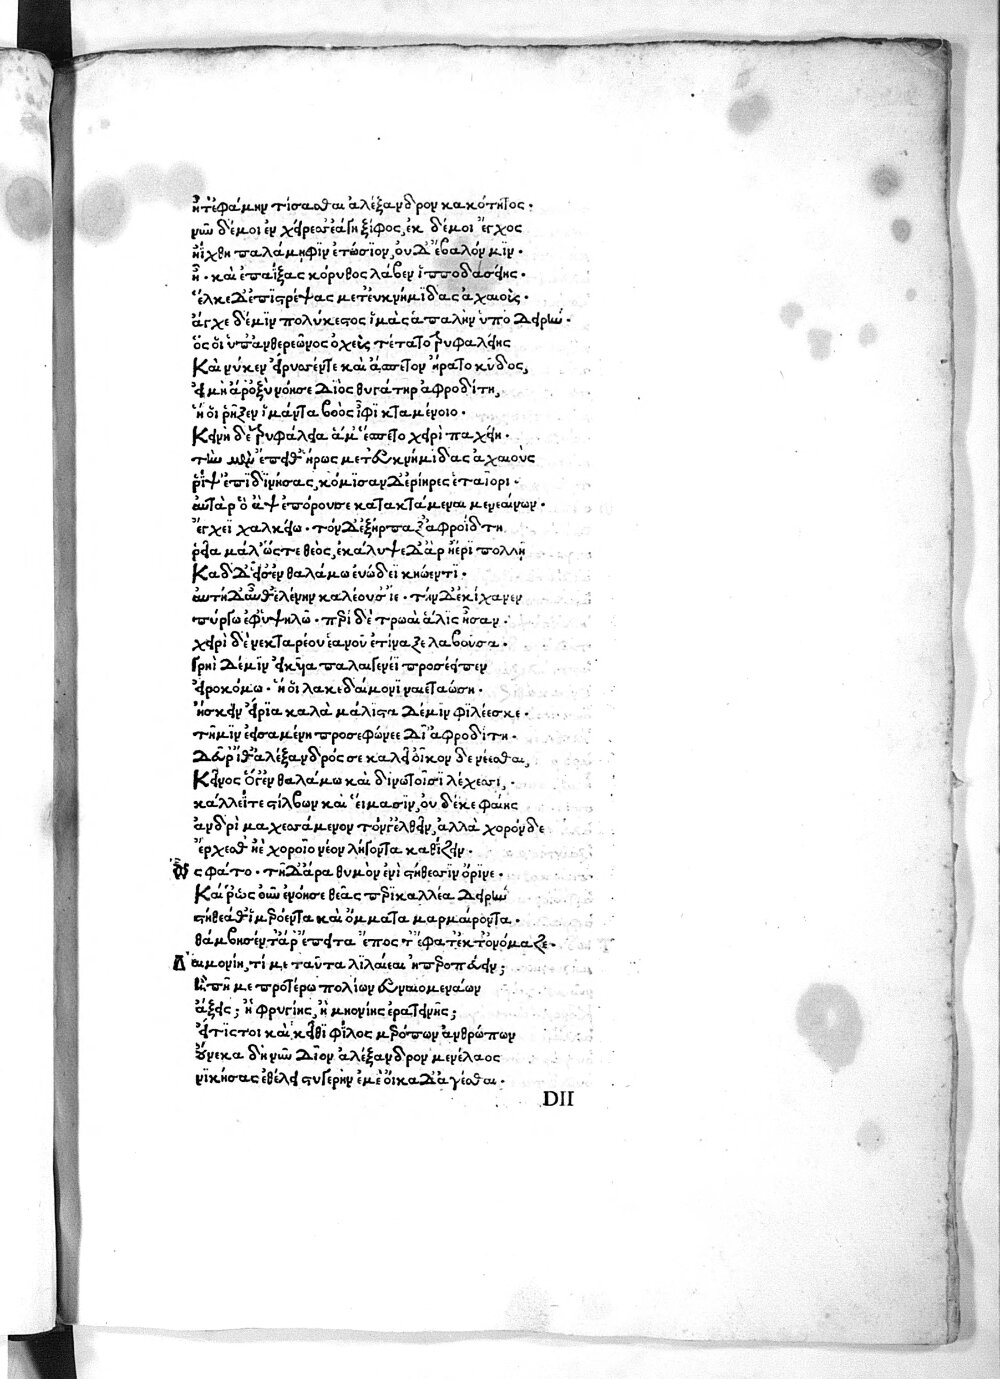 ἦ τ' ἐφάμην τίσασθαι ἀλέξανδρον κακότητος.
νῦν δέ μοι ἐν χείρεσσ' ἐάγη ξίφος, ἐκ δέ μοι ἔγχος
ἠΐχθη παλάμηφιν ἐτώσιον, οὐδ' ἔβαλόν μιν.
ἦ. καὶ ἐπαΐξας κόρυθος λάβεν ἱπποδασείης.
ἕλκε δ' ἐπιστρέψας μετ' ἐυκνήμιδας ἀχαιούς.
ἄγχε δέ μιν πολύκεστος ἱμὰς ἁπαλὴν ὑπὸ δειρήν.
ὅς οἱ ὑπ' ἀνθερεῶνος ὀχεὺς τέτατο τρυφαλείης
Καὶ νύ κεν εἴρυσσέν τε καὶ ἄσπετον ἤρατο κῦδος,
εἰ μὴ ἄρ' ὀξὺ νόησε διὸς θυγάτηρ ἀφροδίτη,
ἥ οἱ ῥῆξεν ἱμάντα βοὸς ἶφι κταμένοιο.
Κεινὴ δὲ τρυφάλεια ἅμ' ἕσπετο χειρὶ παχείῃ.
τὴν μὲν ἔπειθ' ἥρως μετ' ἐυκνήμιδας ἀχαιοὺς
ῥίψ' ἐπιδινήσας, κόμισαν δ' ἐρίηρες ἑταῖροι.
αὐτὰρ ὁ ἂψ ἐπόρουσε κατακτάμεναι μενεαίνων.
ἔγχεϊ χαλκείῳ. τὸν δ' ἐξήρπαξ' ἀφροδίτη
ῥεῖα μάλ' ὥστε θεὸς, ἐκάλυψε δ' ἄρ' ἠέρι πολλῇ
Καδ' δ' εἷσ' ἐν θαλάμω εὐώδεϊ κηώεντι.
αὐτὴ δ' αὖθ' ἑλένην καλέουσ' ἴε. τὴν δ' ἐκίχανεν
πύργω ἐφ' ὑψηλῶ. περὶ δὲ τρωαὶ ἅλις ἦσαν.
χειρὶ δὲ νεκταρέου ἑανοῦ ἐτίναξε λαβοῦσα.
γρηῒ δέ μιν εἰκυῖα παλαιγενέϊ προσέειπεν
εἰροκόμω. ἥ οἱ λακεδαίμονι ναιεταώση.
ἤσκειν εἴρια καλὰ μάλιστα δέ μιν φιλέεσκε.
τῇ μιν ἐεισαμένη προσεφώνεε δῖ' ἀφροδίτη.
Δεῦρ' ἴθ' ἀλέξανδρός σε καλεῖ οἶκον δὲ νέεσθαι,
Κεῖνος ὅγ' ἐν θαλάμω καὶ δινωτοῖσι λέχεσσι,
κάλλεΐ τε στίλβων καὶ εἵμασιν, οὐ δέ κε φαίης
ἀνδρὶ μαχεσσάμενον τόνγ' ἐλθεῖν, ἀλλὰ χορόνδε
ἔρχεσθ' ἠὲ χοροῖο νέον λήγοντα καθίζειν.
Ὣς φάτο. τῇ δ' ἄρα θυμὸν ἐνὶ στήθεσσιν ὄρινε.
Καί ῥ' ὡς οὖν ἐνόησε θεᾶς περικαλλέα δειρὴν
στήθεά θ' ἱμερόεντα καὶ ὄμματα μαρμαίροντα.
θάμβησέν τ' ἄρ' ἔπειτα ἔπος τ' ἔφατ' ἔκ τ' ὀνόμαζε.
Δαιμονίη, τί με ταῦτα λιλαίεαι ἠπεροπεύειν;
ἦ πῇ με προτέρω πολίων εὐναιομενάων
ἄξεις; ἢ φρυγίης, ἢ μηονίης ἐρατεινῆς;
εἴ τίς τοι καὶ κεῖθι φίλος μερόπων ἀνθρώπων
Οὕνεκα δὴ νῦν δῖον ἀλέξανδρον μενέλαος
νικήσας ἐθέλει στυγερὴν ἐμὲ οἴκαδ' ἄγεσθαι.
DII